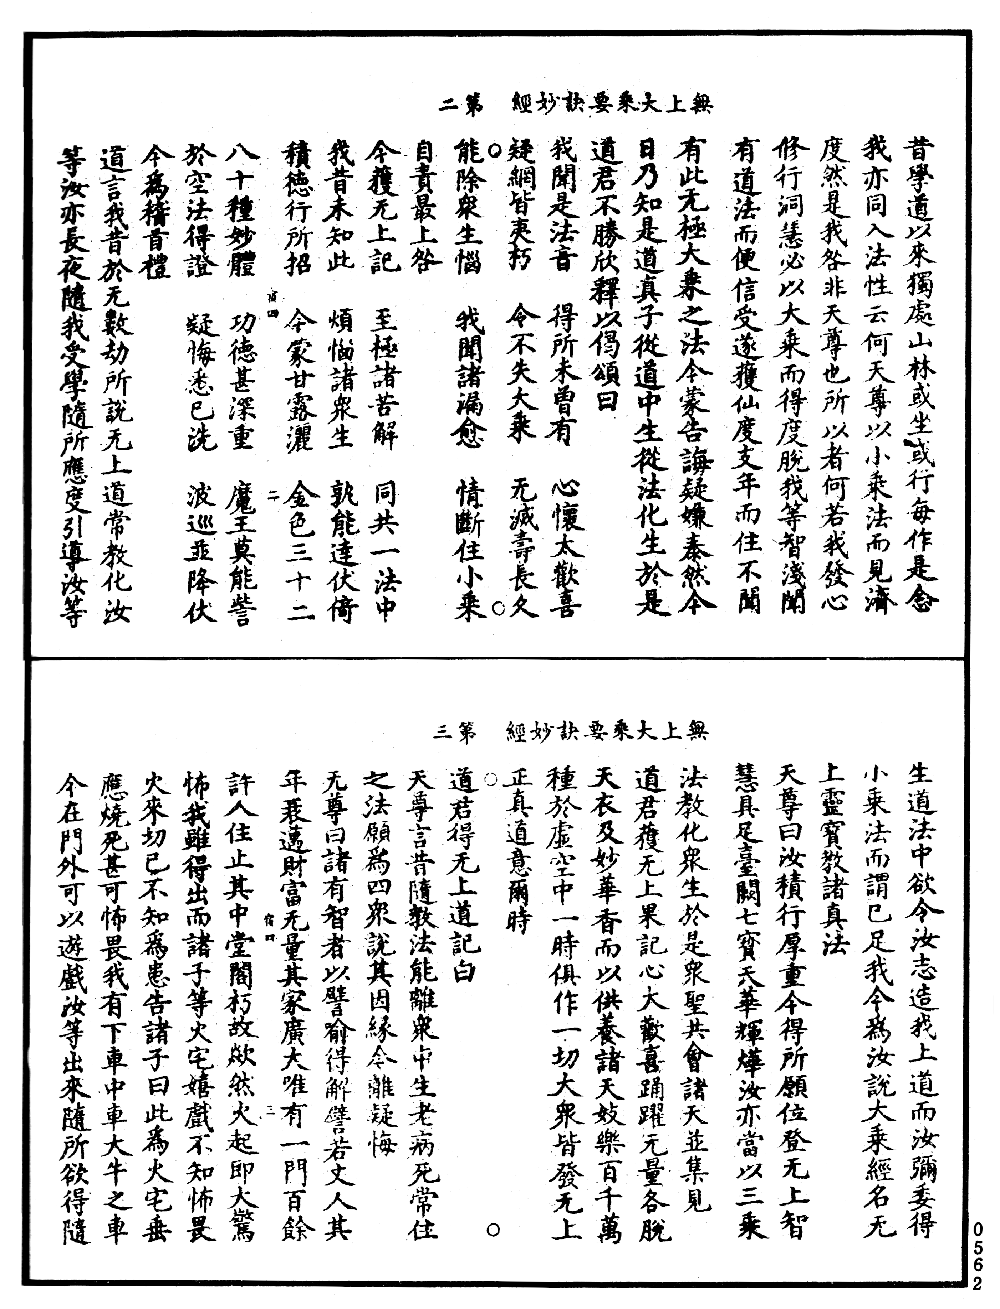 無上大乘要訣妙經　第二
昔學道以來獨處山林或坐或行每作是念
我亦同入法性云何天尊以小乘法而見濟
度然是我咎非天尊也所以者何若我發心
修行洞慧必以大乘而得度脫我等智淺聞
有道法而便信受遂獲仙度支年而住不聞
有此无極大乘之法今蒙告誨疑嫌泰然今
日乃知是道真子從道中生從法化生於是
道君不勝欣釋以偈頌曰
我聞是法音　得所未曾有　心懷太歡喜
疑網皆夷朽　令不失大乘　无減壽長久
能除衆生惱　我聞諸漏愈　情斷住小乘
自責最上咎
今獲无上記　至極諸苦解　同共一法中
我昔未知此　煩惱諸衆生　孰能達伏倚
積德行所招　今蒙甘露灑　金色三十二
宿四　二
八十種妙體　功德甚深重　魔王莫能訾
於空法得證　疑悔悉已洗　波巡並降伏
今爲稽首禮
道言我昔於无數劫所說无上道常教化汝
等汝亦長夜隨我受學隨所應度引導汝等
無上大乘要訣妙經　第三
生道法中欲令汝志造我上道而汝彌委得
小乘法而謂已足我今爲汝說大乘經名无
上靈寶教諸真法
天尊曰汝積行厚重今得所願位登无上智
慧具足臺闕七寶天華輝燁汝亦當以三乘
法教化衆生於是衆聖共會諸天並集見
道君獲无上果記心大歡喜踊躍无量各脫
天衣及妙華香而以供養諸天妓樂百千萬
種於虛空中一時俱作一切大衆皆發无上
正真道意爾時
道君得无上道記白
天尊言昔隨教法能離衆中生老病死常住
之法願爲四衆說其因緣令離疑悔
无尊曰諸有智者以譬喻得解譬若丈人其
年衰邁財富无量其家廣大唯有一門百餘
宿四　三
許人住止其中堂閣朽故欻然火起即大驚
怖我雖得出而諸子等火宅嬉戲不知怖畏
火來切已不知爲患告諸子曰此爲火宅垂
應燒死甚可怖畏我有下車中車大牛之車
今在門外可以遊戲汝等出來隨所欲得隨
0562